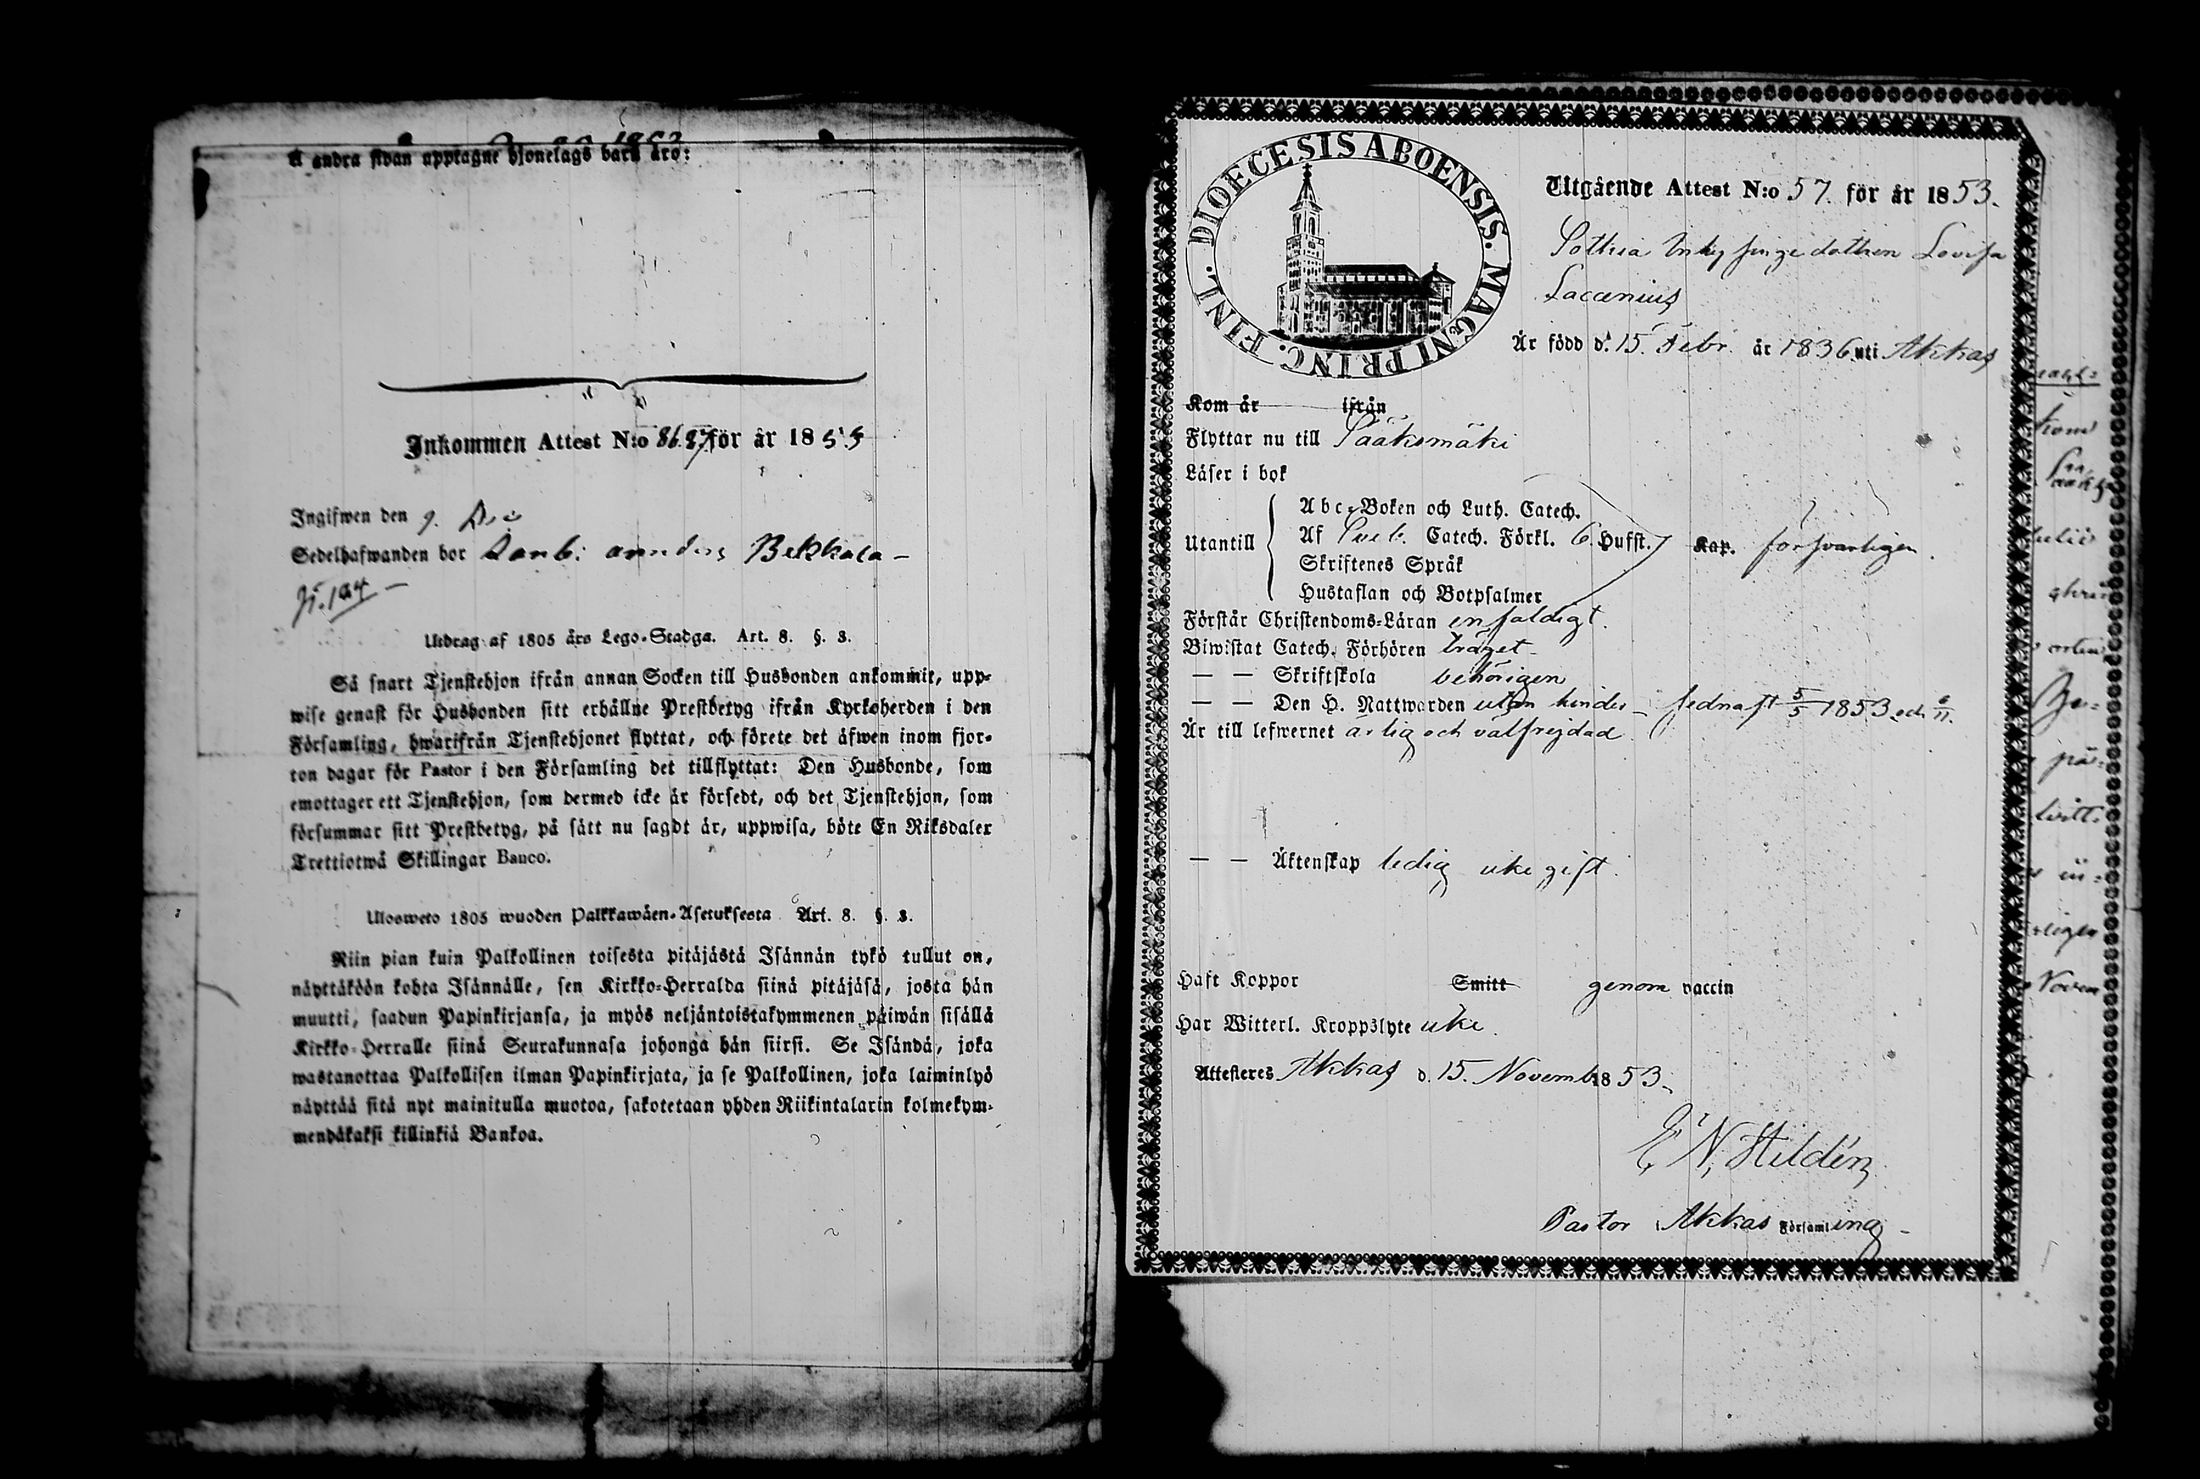 å andra sidan upptagne hjonelags barn äro:
Inkommen Attest N:o 86.87 för år 1853
Ingifwen den 9. Dec
Sedelhafwanden bor Lamb: Anders Bekkala –
Utdrag af 1805 års Lego-Stadga. Art. 8. §. 3.
Så snart Tjenstehjon ifrån annan Socken till Husbonden ankommit, upp-
wise genast för Husbonden sitt erhållne Prestbetyg ifrån Kyrkoherden i den
Församling, hwarifrån Tjenstehjonet flyttat, och förete det äfwen inom fjor-
ton dagar för Pastor i den Församling det tillflyttat: Den Husbonde, som
emottager ett Tjenstehjon, som dermed icke är försedt, och det Tjenstehjon, som
försummar sitt Prestbetyg, på sätt nu sagdt är, uppwisa, böte En Riksdaler
Trettiotwå Skillingar Banco.
Ulosweto 1805 wuoden Palkkawäen-Asetuksesta Art. 8. §. 3.
Niin pian kuin Palkollinen toisesta pitäjästä Isännän tykö tullut on,
näyttäköön kohta Isännälle, sen Kirkko-Herralda siinä pitäjäsä, josta hän
muutti, saadun Papinkirjansa, ja myös neljäntoistakymmenen päiwän sisällä
Kirkko-Herralle siinä Seurakunnasa johonga hän siirsi. Se Isändä, joka
wastanottaa Palkollisen ilman Papinkirjata, ja se Palkollinen, joka laiminlyö
näyttää sitä nyt mainitulla muotoa, sakotetaan yhden Riikintalarin kolmekym-
mendäkaksi killinkiä Bankoa.
DIOECESIS ABOENSIS. MAGNI PRINC. FINL.
Utgående Attest N:o 57. för år 1853.
dottren Lovisa
Lacænius
Är född d. 15. Febr. år 1836 uti Akkas
Kom år ifrån
Flyttar nu till Sääksmäki
Läser i bok
Utantill
Abc-Boken och Luth. Catech.
Af Sveb. Catech. Förkl. 6. Hufst. Kap. försvarligen.
Skriftenes Språk
Hustaflan och Botpsalmer
Förstår Christendoms-Läran enfaldigt.
Biwistat Catech. Förhören träget
— — Skriftskola behörigen
— — Den H. Nattwarden utan hinder – sednast 5/5 1853. och 6/11.
Är till lefwernet ärlig och välfrejdad
— — Äktenskap ledig icke gift.
Haft Koppor Smitt genom vaccin
Har Witterl. Kroppslyte icke.
Attesteras Akkas d. 15. Novemb. 1853.
E N, Hildén
Pastor i Akkas Församling –